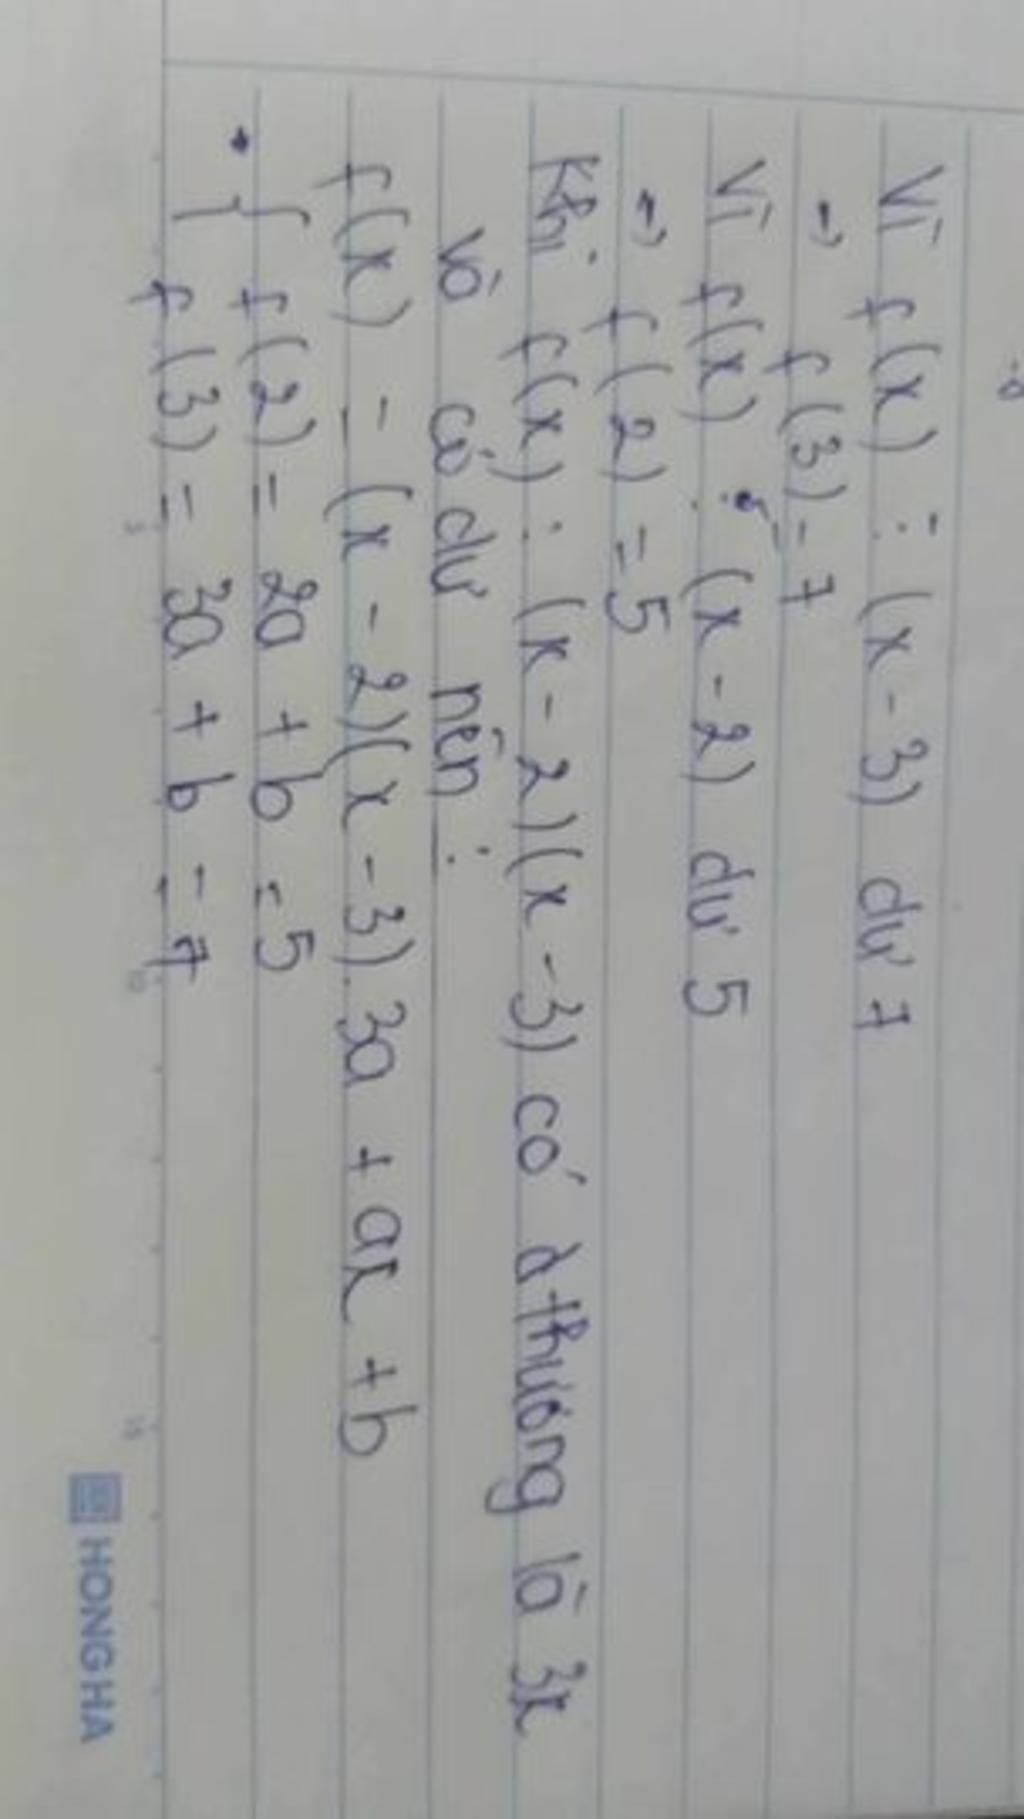 Vì f(x) : (x - 3) dư 7
=> f(3) = 7
Vì f(x) : (x - 2) dư 5
=> f(2) = 5
Khi f(x) : (x - 2)(x - 3) có đ thương là 3x
và có dư nên :
f(x) = (x - 2)(x - 3). 3a + ax + b
{ f(2) = 2a + b = 5
f(3) = 3a + b = 7
HONG HA